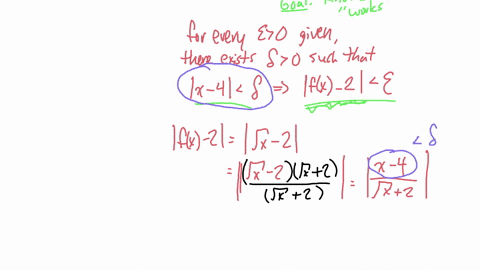 Goal:
"works
for every ε>0 given,
there exists δ>0 such that
|x-4|<δ ⇒ |f(x)-2|<ε
|f(x)-2| = |√x-2|
<δ
= |(√x-2)(√x+2)/(√x+2)| = |x-4/√x+2|